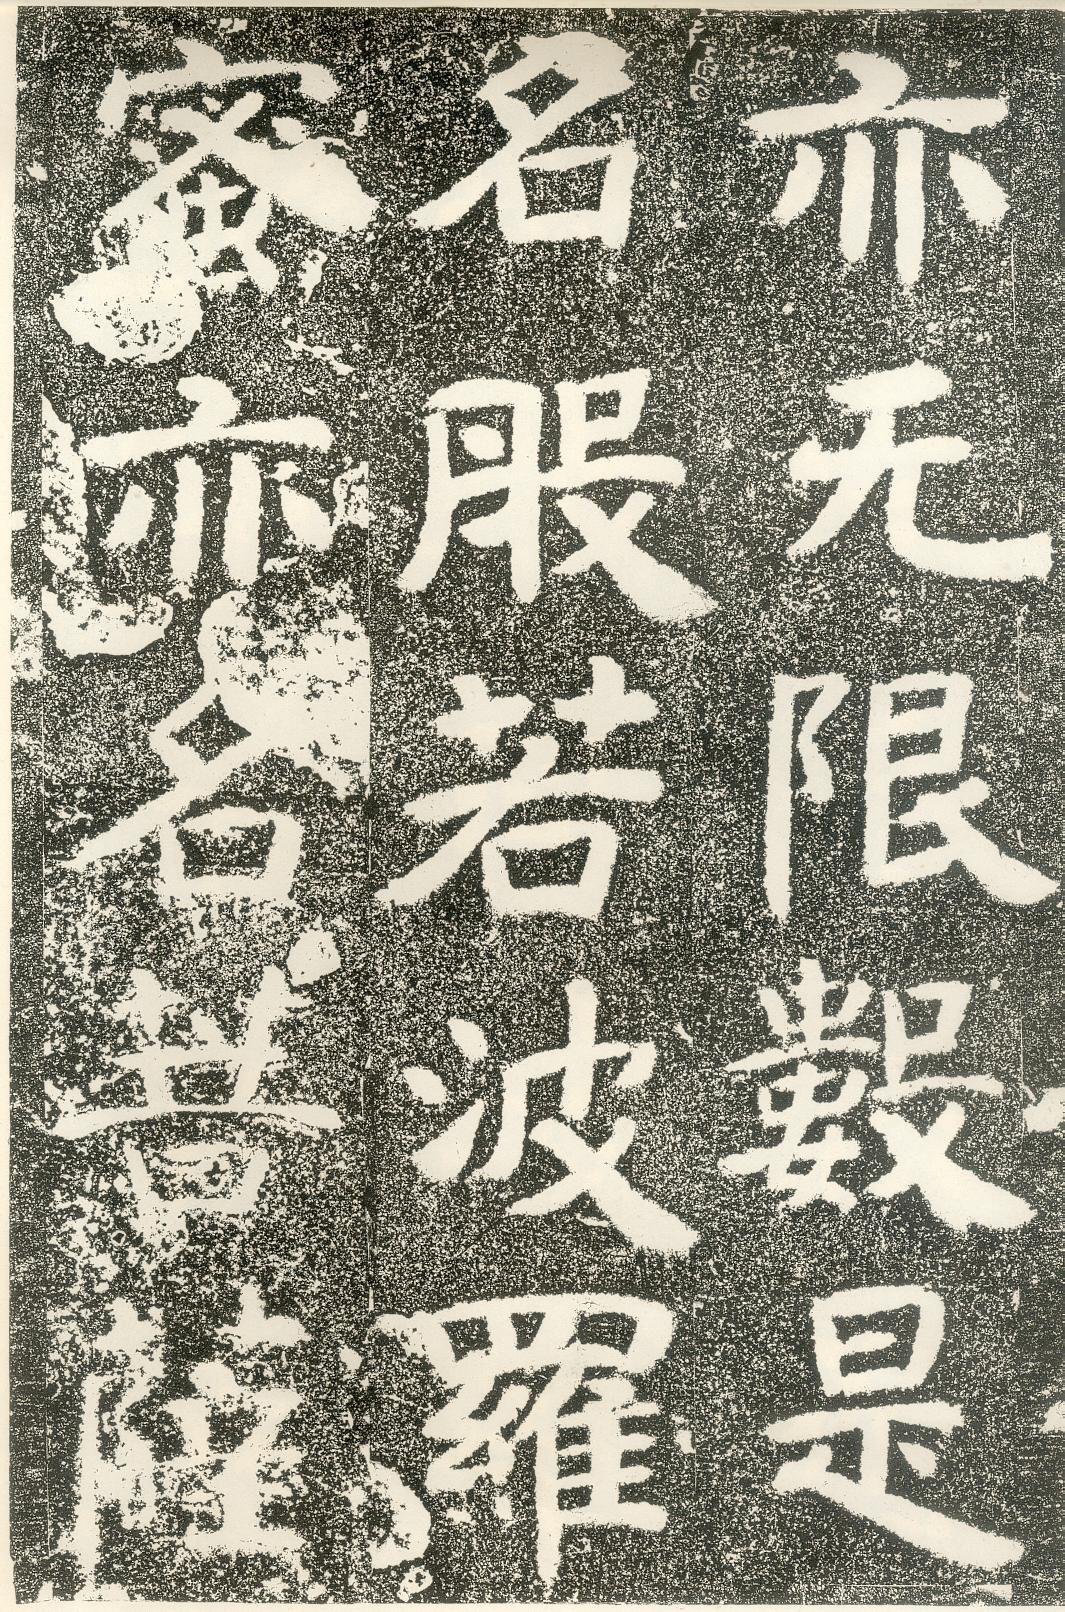 亦无限數是
名般若波羅
蜜亦名菩薩